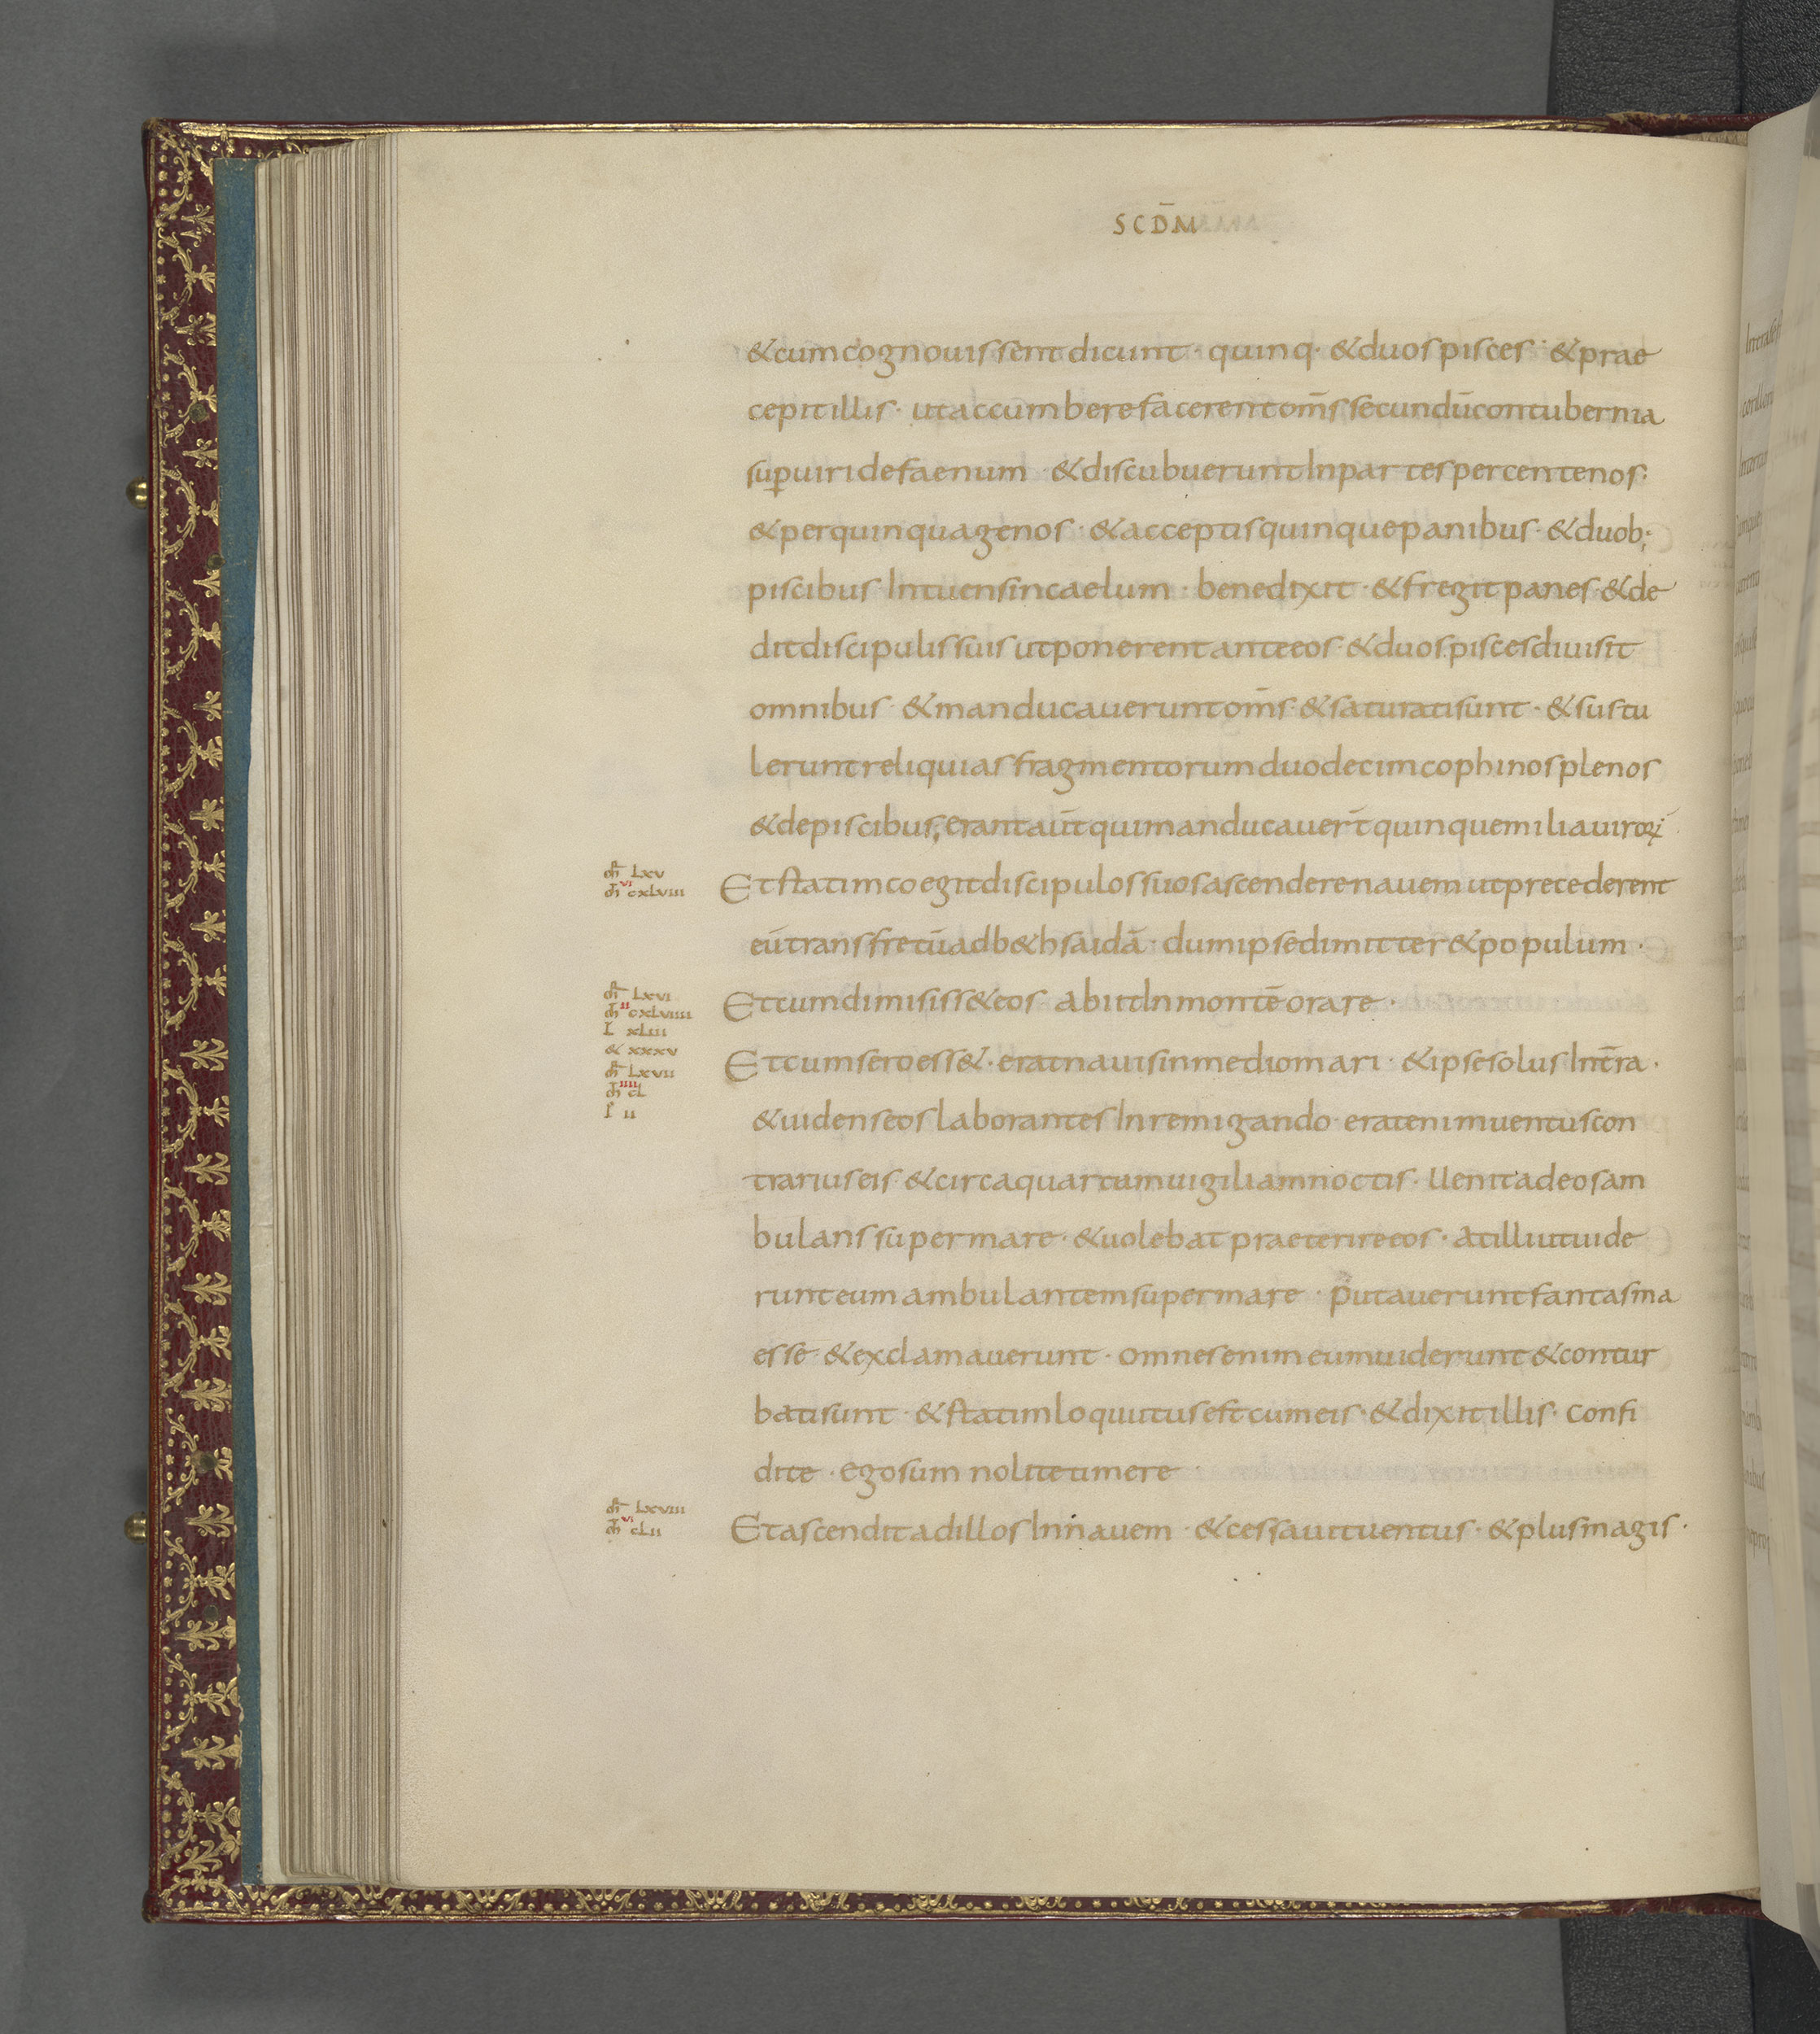 SCD̄M
&cumcognouissent dicunt · quinq· &duos pisces · &prae
cepit illis · ut accumbere facerent om̄s secundū contubernia
sup̱ uiride faenum · &discubuerunt In partes per centenos ·
&per quinquagenos · &acceptis quinque panibus · &duob;
piscibus Intuens in caelum · benedixit · &fregit panes · &de
dit discipulis suis ut ponerent ante eos · &duos pisces diuisit
omnibus · &manducauerunt om̄s · &saturati sunt · &sustu
lerunt reliquias fragmentorum duodecim cophinos plenos
&de piscibus; erant aūt qui manducauer̄t quinque milia uiroꝝ
m̄r LXV
m̄t VI CXLVIII
Et statim coegit discipulos suos ascendere nauem ut precederent
eū trans fretū ad b&hsaidā · dum ipse dimitter& populum ·
m̄r LXVI
m̄t II CXLVIIII
L XLIII
& XXXV
Et cum dimisiss& eos abiit In montē orare ·
m̄r LXVII
m̄t IIII CL
I II
Et cum sero ess& · erat nauis in medio mari · &ipse solus In t̄ra ·
&uidens eos laborantes In remigando · erat enim uentus con
trarius eis · &circa quartum uigiliam noctis · Uenit ad eos am
bulans super mare · &uolebat praeterire eos · at illi ut uide
runt eum ambulantem super mare · putauerunt fantasma
esse · &exclamauerunt · omnes enim eum uiderunt &contur
bati sunt · &statim loquutus est cum eis · &dixit illis · confi
dite · ego sum nolite timere ·
m̄r LXVIII
m̄t VI CLII
Et ascendit ad illos In nauem · &cessauit uentus · &plus magis ·